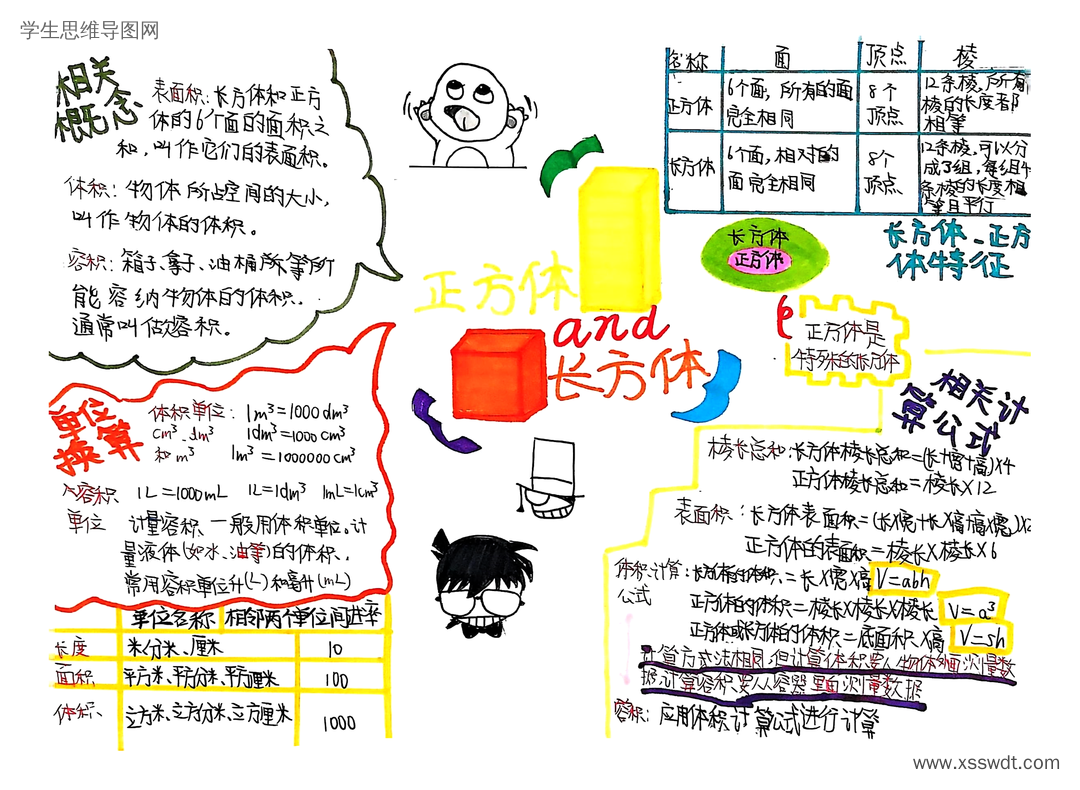 学生思维导图网
相关
概念
表面积：长方体和正方
体的6个面的面积之
和，叫作它们的表面积。
体积：物体所占空间的大小，
叫作物体的体积。
容积：箱子、
油桶所
等所
能容纳物体的体积．
通常叫做容积。
名称 面 顶点 棱
正方体
6个面，所有的面
完全相同
8个
顶点
12条棱，所有
棱的长度都
相等
长方体
6个面，相对的
面完全相同
8个
顶点
12条棱，可以分
成了组，每组4
条棱的长度相
等且平行
长方体、正方
体特征
长方体
正方体
正方体
and
长方体
正方体是
特殊的长方体
单位
换算
体积单位：1m³=1000dm³
cm³、dm³ 1dm³=1000cm³
和m³ 1m³=1000000cm³
容积 1L=1000mL 1L=1dm³ 1mL=1cm³
单位 计量容积，一般用体积单位。计
量液体(如水、油等)的体积、
常用容积单位升(L)和毫升(mL)
单位名称 相邻两个单位间进率
长度 米、分米、厘米 10
面积 平方米、平方分米、平方厘米 100
体积 立方米、立方分米、立方厘米 1000
相关计
算公式
棱长总和：长方体棱长总和=(长+宽+高)×4
正方体棱长总和=棱长×12
表面积：长方体表面积=(长×宽+长×高+高×宽)×2
正方体的表面积=棱长×棱长×6
体积计算：长方体的体积=长×宽×高 V=abh
公式
正方体的体积=棱长×棱长×棱长 V=a³
正方体或长方体的体积=底面积×高 V=sh
计算方式法相同，但计算体积要从物体外面测量数
据，计算容积要从容器里面测量数据
容积：应用体积计算公式进行计算
www.xsswdt.com